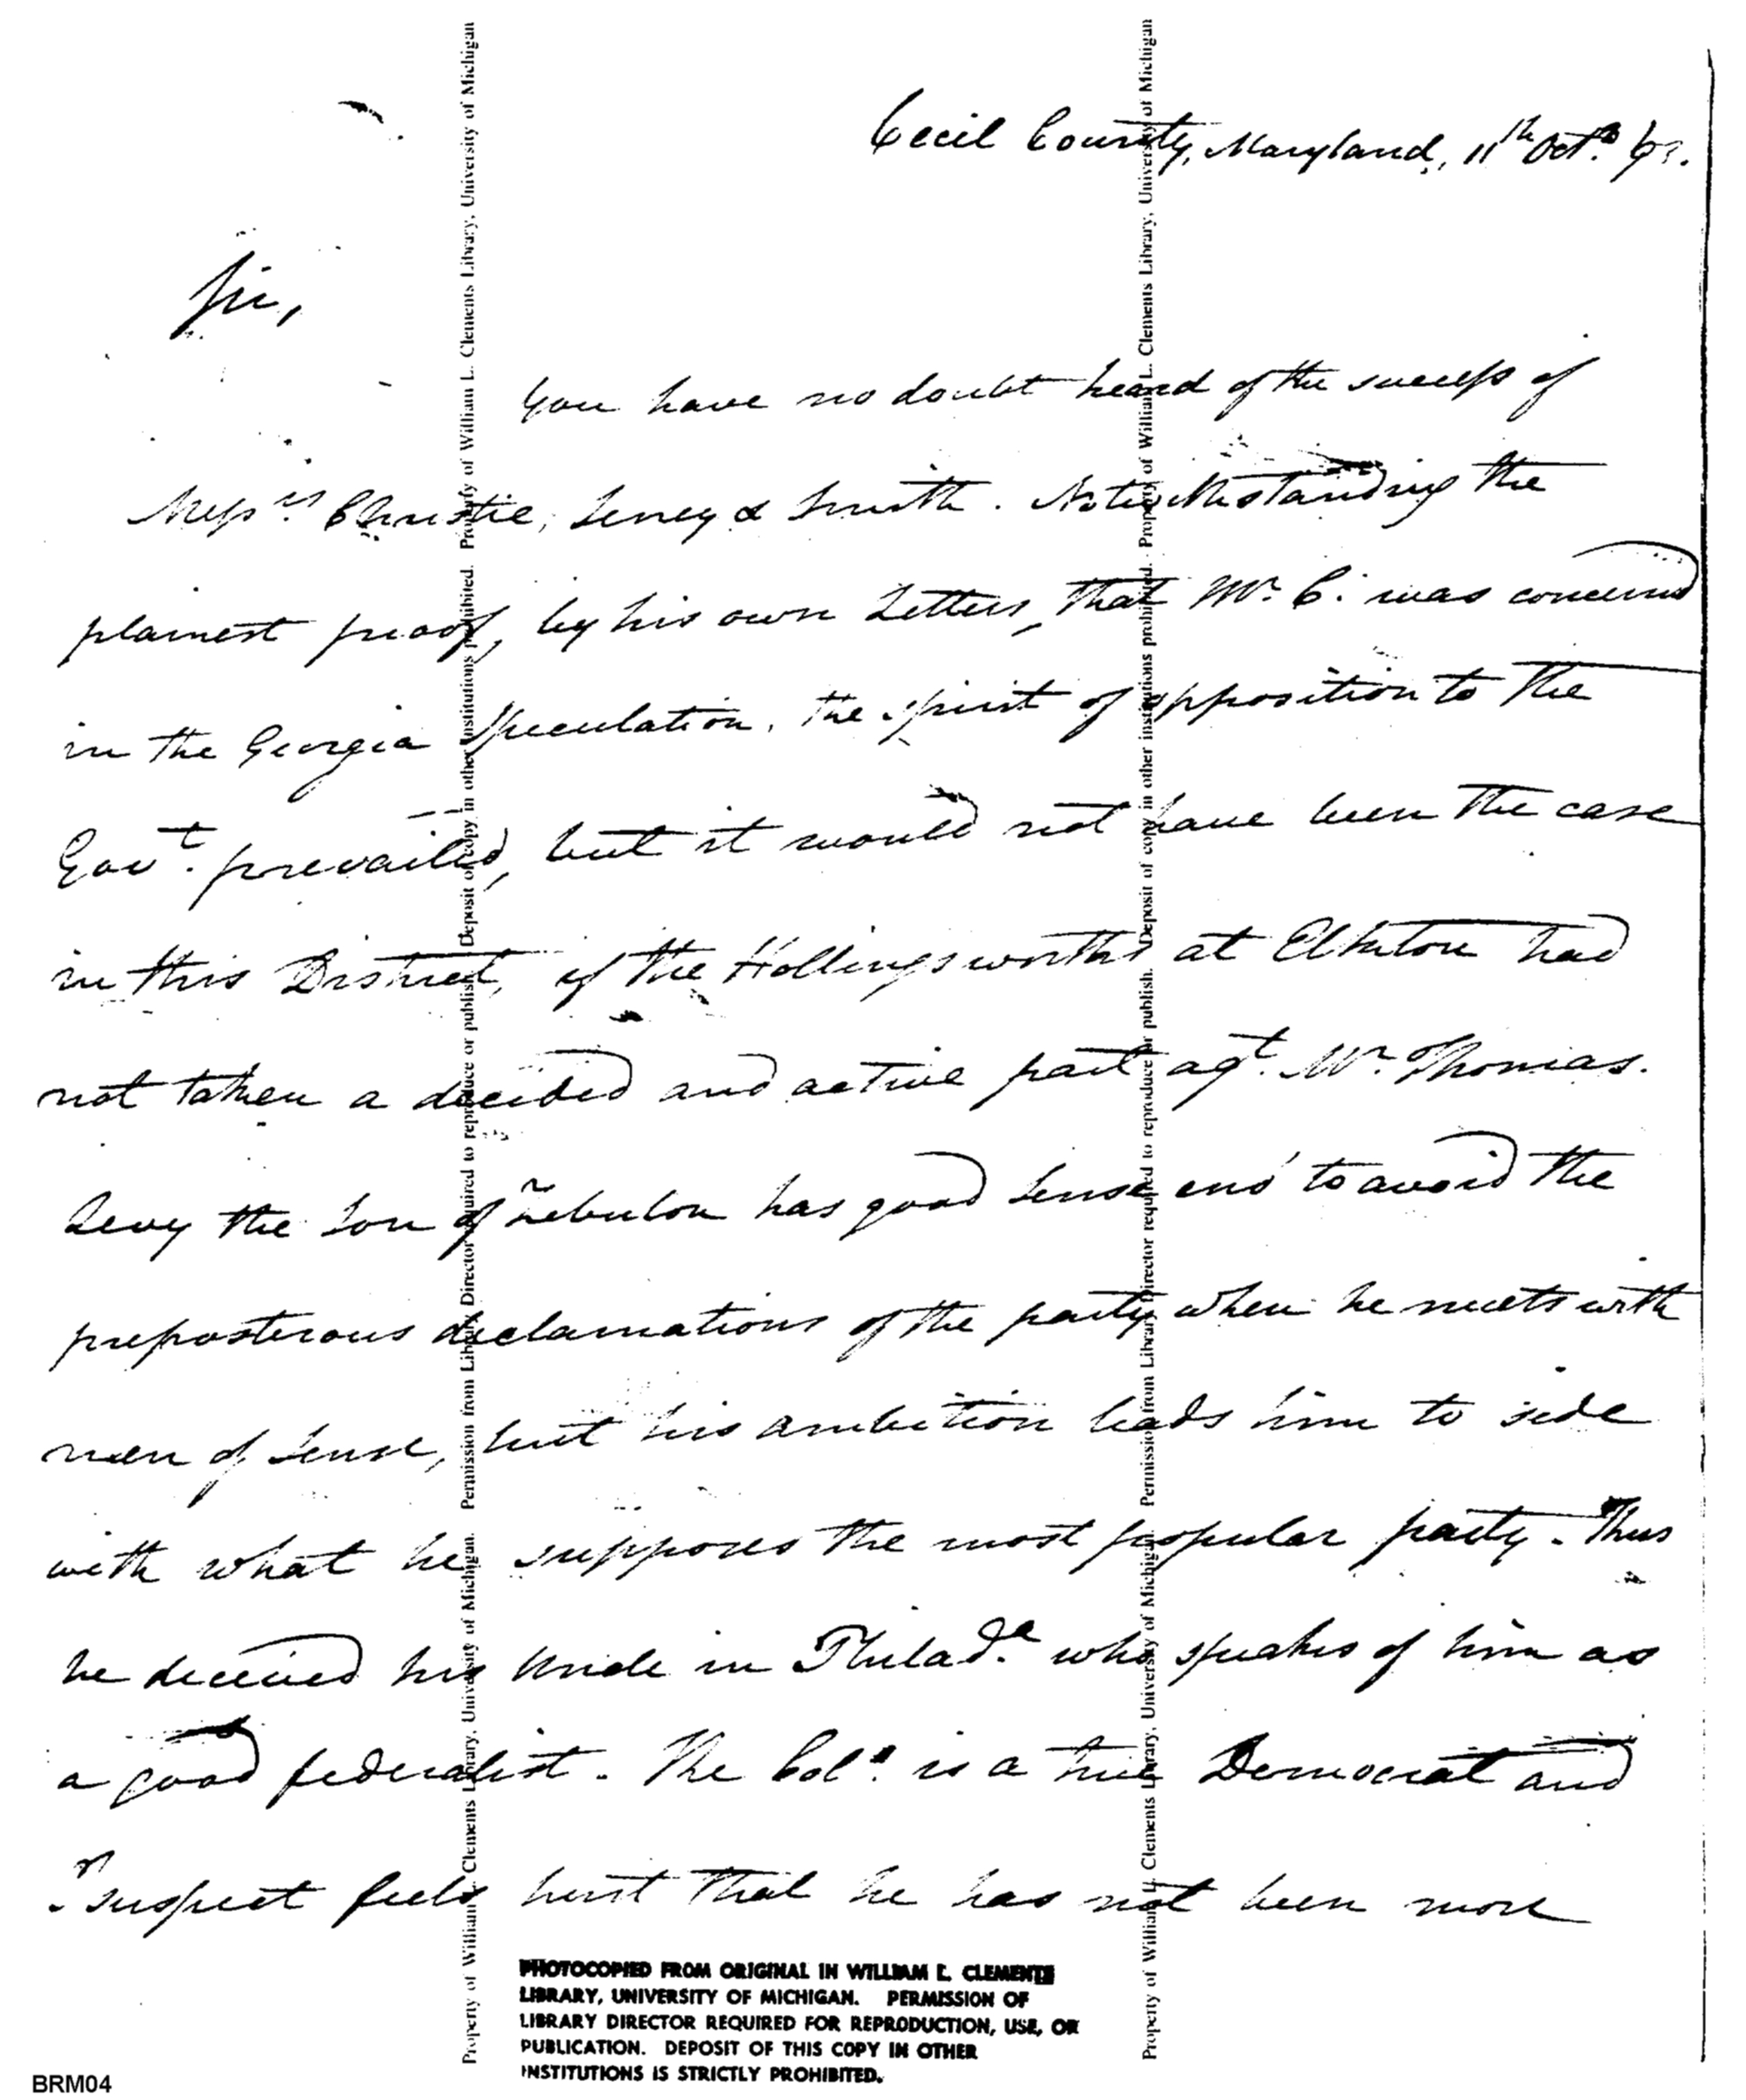 Cecil County, Maryland, 11th Octr.
Sir,
You have no doubt heard of the success of
Messrs. Christie, Seney & Smith. Notwithstanding the
plainest proof, by his own Letters, that Mr. C. was concerned
in the Georgia Speculation, the spirit of opposition to the
Govt. prevailed, but it would not have been the case
in this District, if the Hollingsworths at Elkton had
not taken a decided and active part agt. Mr. Thomas.
Levy the Son of Zebulon has good Sense eno' to avoid the
preposterous declamations of the party when he meets with
men of Sense, but his ambition leads him to side
with what he supposes the most popular party. Thus
he deceived his Uncle in Philada. who speaks of him as
a good federalist. The Colo. is a true Democrat and
I suspect feels hurt that he has not been more
Property of William L. Clements Library, University of Michigan. Permission from Library Director required to reproduce or publish. Deposit of copy in other institutions prohibited. Property of William L. Clements Library, University of Michigan
Property of William L. Clements Library, University of Michigan. Permission from Library Director required to reproduce or publish. Deposit of copy in other institutions prohibited. Property of William L. Clements Library, University of Michigan
PHOTOCOPIED FROM ORIGINAL IN WILLIAM L. CLEMENTS
LIBRARY, UNIVERSITY OF MICHIGAN. PERMISSION OF
LIBRARY DIRECTOR REQUIRED FOR REPRODUCTION, USE, OR
PUBLICATION. DEPOSIT OF THIS COPY IN OTHER
INSTITUTIONS IS STRICTLY PROHIBITED.
BRM04